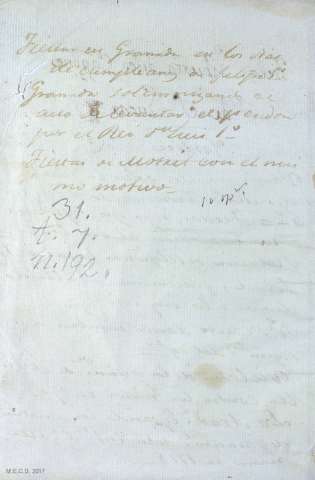 Fiestas en Granada en los dias
de cumpleaños de Felipe 5º
Granada solemnizando el
acto de levantar el pendon
por el Rey Dn Luis 1º
Fiestas de Motril con el mis
mo motivo
31.
t. 7.
n. 192.
M.E.C.D. 2017